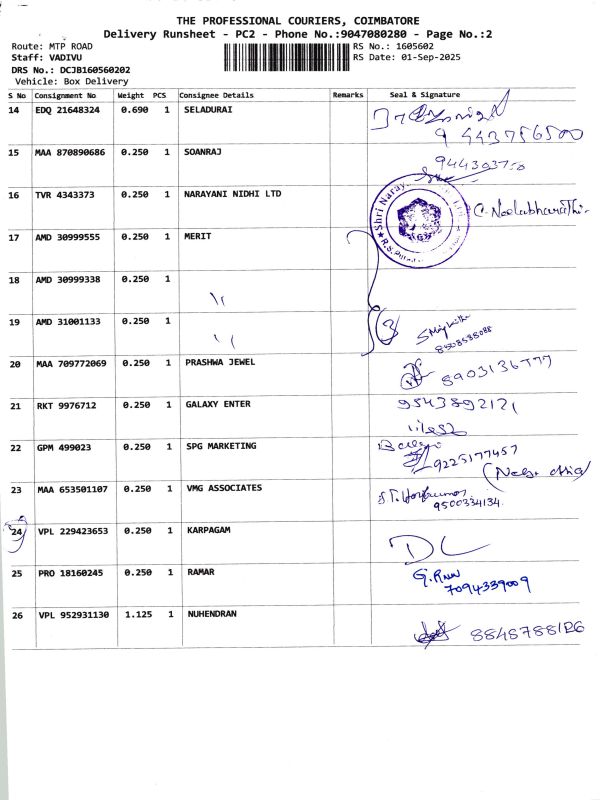 THE PROFESSIONAL COURIERS, COIMBATORE
Delivery Runsheet - PC2 - Phone No.:9047080280 - Page No.:2
Route: MTP ROAD RS No.: 1605602
Staff: VADIVU RS Date: 01-Sep-2025
DRS No.: DCJB160560202
Vehicle: Box Delivery
S No Consignment No Weight PCS Consignee Details Remarks Seal & Signature
14 EDQ 21648324 0.690 1 SELADURAI
9443756500
15 MAA 870890686 0.250 1 SOANRAJ
16 TVR 4343373 0.250 1 NARAYANI NIDHI LTD
Shri Naray
17 AMD 30999555 0.250 1 MERIT
18 AMD 30999338 0.250 1 
19 AMD 31001133 0.250 1 3
8508538088
20 MAA 709772069 0.250 1 PRASHWA JEWEL
8903136777
21 RKT 9976712 0.250 1 GALAXY ENTER
9543892121
22 GPM 499023 0.250 1 SPG MARKETING
9225177457
23 MAA 653501107 0.250 1 VMG ASSOCIATES
9500334134
24 VPL 229423653 0.250 1 KARPAGAM
DL
25 PRO 18160245 0.250 1 RAMAR
7094339009
26 VPL 952931130 1.125 1 NUHENDRAN